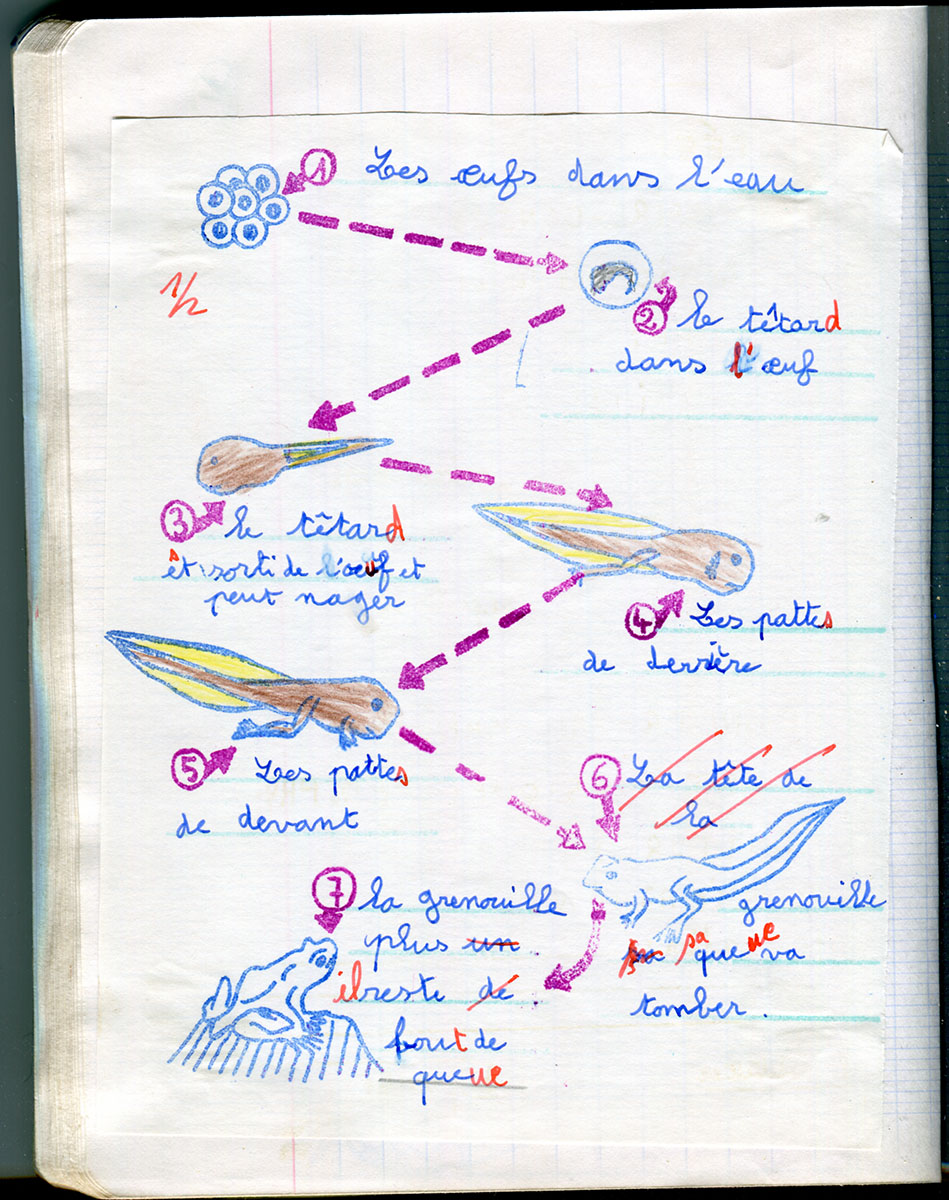 1 Les œufs dans l'eau
1/2
2 le têtard
dans l'œuf
3 le têtard
est sorti de l'œuf et
peut nager
4 Les pattes
de derrière
5 Les pattes
de devant
6 La tête de
la
grenouille
sa queue va
tomber.
7 la grenouille
plus un
il reste de
bout de
queue